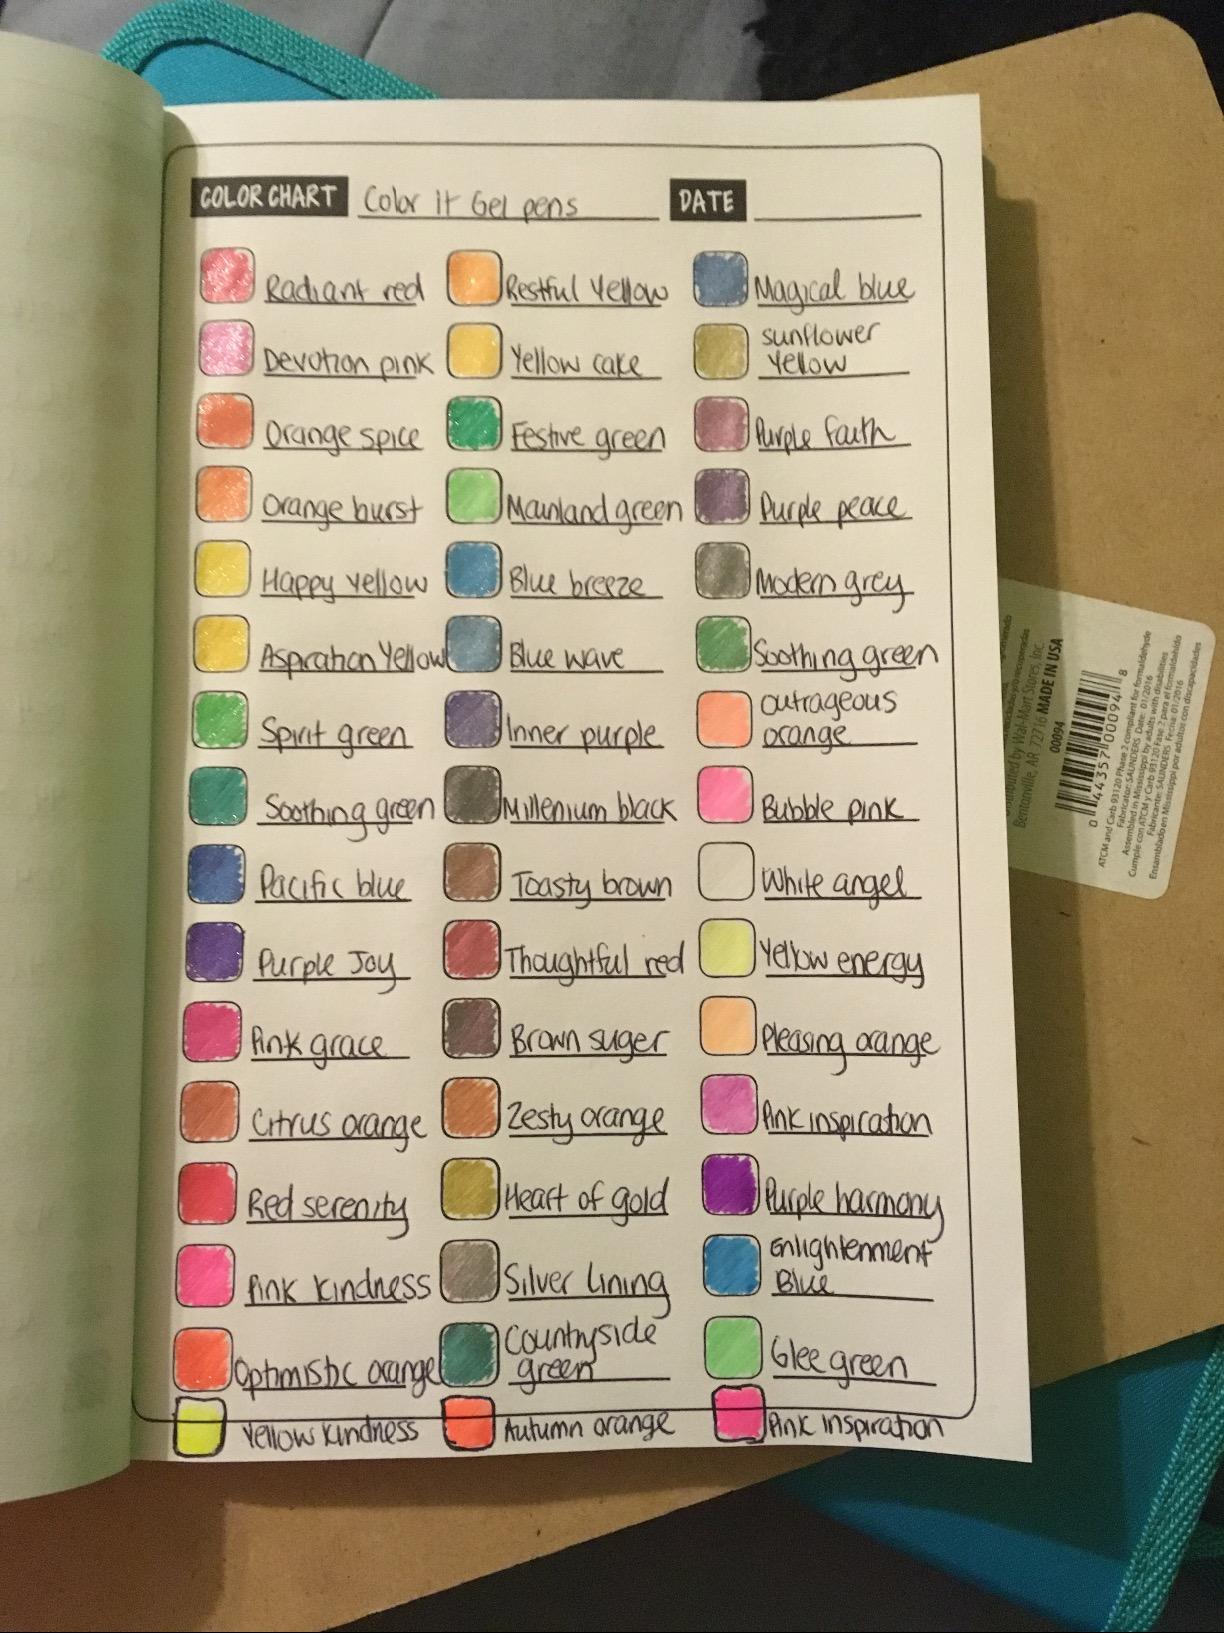 COLOR CHART Color It Gel pens DATE
Radiant red
Devotion pink
Orange spice
Orange burst
Happy Yellow
Aspiration Yellow
Spirit green
Soothing green
Pacific blue
Purple Joy
Pink grace
Citrus orange
Red serenity
Pink Kindness
Optimistic orange
Yellow Kindness
Restful Yellow
Yellow cake
Festive green
Mainland green
Blue breeze
Blue wave
Inner purple
Millenium black
Toasty brown
Thoughtful red
Brown suger
Zesty orange
Heart of gold
Silver Lining
Countryside
green
Autumn orange
Magical blue
sunflower
Yellow
Purple faith
Purple peace
Modern grey
Soothing green
outrageous
orange
Bubble pink
White angel
Yellow energy
Pleasing orange
Pink inspiration
Purple harmony
Enlightenment
Blue
Glee green
Pink inspiration
by Wal-Mart Stores, Inc.
Bentonville, AR 72716 MADE IN USA
00094
0 44357 00094 8
ATCM and Carb 93120 Phase 2 compliant for formaldehyde
Fabricator: SAUNDERS Date: 01/2016
Assembled in Mississippi by adults with disabilities
Cumple con ATCM y Carb 93120 Fase 2 para el formaldehído
Fabricante: SAUNDERS Fecha: 01/2016
Ensamblado en Mississippi por adultos con discapacidades